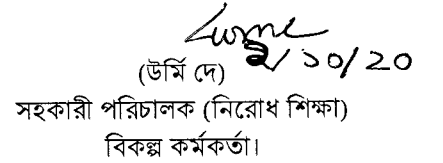 ২/১০/২০
(উর্মি দে)
সহকারী পরিচালক (নিরোধ শিক্ষা)
বিকল্প কর্মকর্তা।